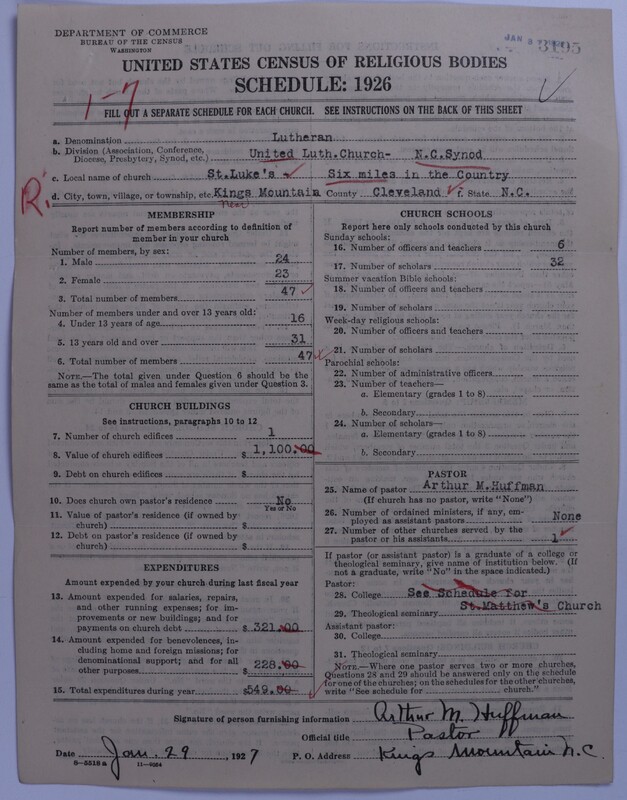 DEPARTMENT OF COMMERCE
BUREAU OF THE CENSUS
WASHINGTON
3195
UNITED STATES CENSUS OF RELIGIOUS BODIES
SCHEDULE: 1926
1-7
FILL OUT A SEPARATE SCHEDULE FOR EACH CHURCH. SEE INSTRUCTIONS ON THE BACK OF THIS SHEET
a. Denomination Lutheran
b. Division (Association, Conference, Diocese, Presbytery, Synod, etc.) United Luth.Church- N.C.Synod
c. Local name of church St.Luke's - Six miles in the Country
R.
d. City, town, village, or township, etc. Kings Mountain County Cleveland f. State N.C.
Near
MEMBERSHIP
Report number of members according to definition of member in your church
Number of members, by sex:
1. Male 24
2. Female 23
3. Total number of members 47
Number of members under and over 13 years old:
4. Under 13 years of age 16
5. 13 years old and over 31
6. Total number of members 47
NOTE.—The total given under Question 6 should be the same as the total of males and females given under Question 3.
CHURCH BUILDINGS
See instructions, paragraphs 10 to 12
7. Number of church edifices 1
8. Value of church edifices $ 1,100.00
9. Debt on church edifices $
10. Does church own pastor's residence No
Yes or No
11. Value of pastor's residence (if owned by church) $
12. Debt on pastor's residence (if owned by church) $
EXPENDITURES
Amount expended by your church during last fiscal year
13. Amount expended for salaries, repairs, and other running expenses; for improvements or new buildings; and for payments on church debt $ 321.00
14. Amount expended for benevolences, including home and foreign missions; for denominational support; and for all other purposes $ 228.00
15. Total expenditures during year $549.00
CHURCH SCHOOLS
Report here only schools conducted by this church
Sunday schools:
16. Number of officers and teachers 6
17. Number of scholars 32
Summer vacation Bible schools:
18. Number of officers and teachers
19. Number of scholars
Week-day religious schools:
20. Number of officers and teachers
21. Number of scholars
Parochial schools:
22. Number of administrative officers
23. Number of teachers—
a. Elementary (grades 1 to 8)
b. Secondary
24. Number of scholars—
a. Elementary (grades 1 to 8)
b. Secondary
PASTOR
25. Name of pastor Arthur M.Huffman
(If church has no pastor, write "None")
26. Number of ordained ministers, if any, employed as assistant pastors None
27. Number of other churches served by the pastor or his assistants 1
If pastor (or assistant pastor) is a graduate of a college or theological seminary, give name of institution below. (If not a graduate, write "No" in the space indicated.)
Pastor:
28. College See Schedule for
29. Theological seminary St.Matthew's Church
Assistant pastor:
30. College
31. Theological seminary
NOTE.—Where one pastor serves two or more churches, Questions 28 and 29 should be answered only on the schedule for one of the churches; on the schedules for the other churches, write "See schedule for church."
Signature of person furnishing information Arthur M. Huffman
Official title Pastor
Date Jan. 29, 1927 P. O. Address Kings Mountain N.C.
8-5518a 11-9064